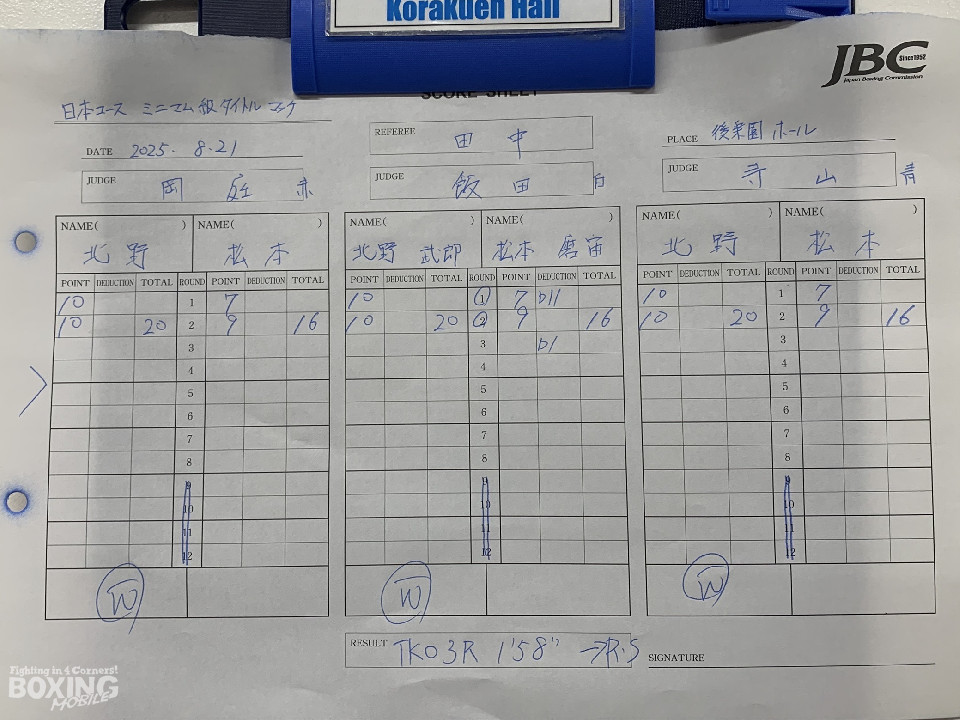 Korakuen Hall
JBC Since1952
Japan Boxing Commission
SCORE SHEET
日本ユース ミニマム級タイトルマッチ
DATE 2025. 8.21
REFEREE 田中
PLACE 後楽園ホール
JUDGE 岡庭 赤
JUDGE 飯田 白
JUDGE 寺山 青
NAME( ) NAME( ) NAME( ) NAME( ) NAME( ) NAME( )
北野 松本 北野 武郎 松本 磨宙 北野 松本
POINT DEDUCTION TOTAL ROUND POINT DEDUCTION TOTAL POINT DEDUCTION TOTAL ROUND POINT DEDUCTION TOTAL POINT DEDUCTION TOTAL ROUND POINT DEDUCTION TOTAL
10 1 7 10 1 7 D11 10 1 7
10 20 2 9 16 10 20 2 9 16 10 20 2 9 16
3 3 D1 3
4 4 4
5 5 5
6 6 6
7 7 7
8 8 8
9 9 9
10 10 10
11 11 11
12 12 12
W W W
RESULT TKO 3R 1'58" →R.S
SIGNATURE
Fighting in 4 Corners!
BOXING
MOBILE